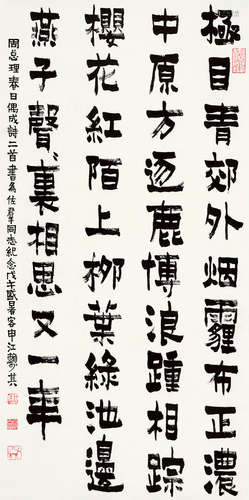 極目青郊外烟霾布正濃
中原方逐鹿博浪踵相踪
櫻花紅陌上柳葉綠池邊
燕子聲〻裏相思又一年
周总理春日偶成詩二首書為佐群同志紀念戊午盛暑客申江